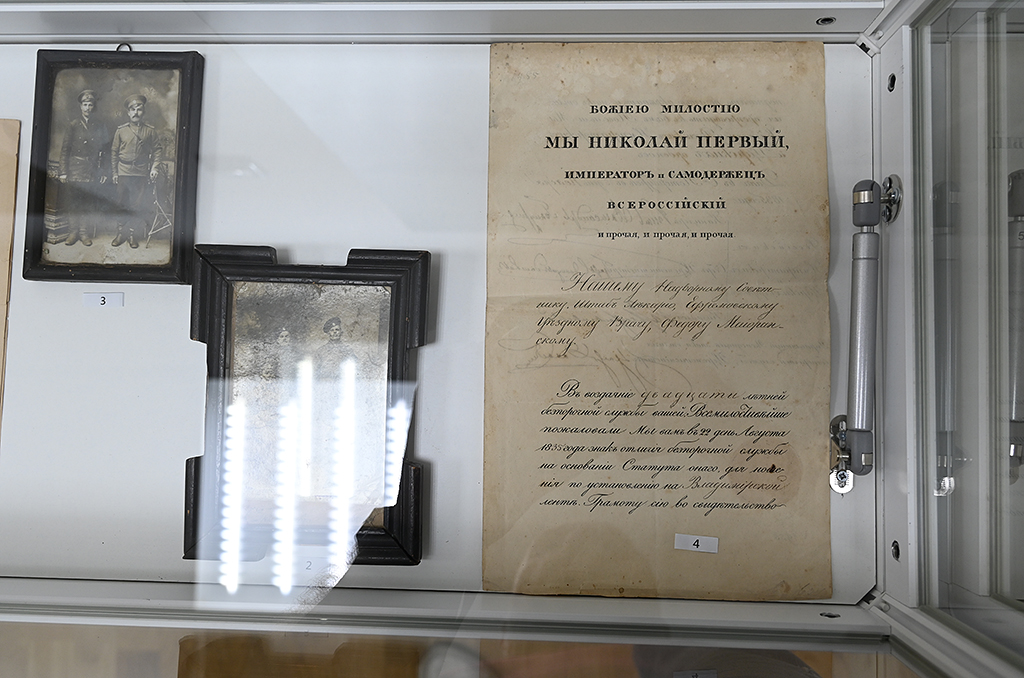 БОЖІЕЮ МИЛОСТІЮ
МЫ НИКОЛАЙ ПЕРВЫЙ,
ИМПЕРАТОРЪ и САМОДЕРЖЕЦЪ
ВСЕРОССІЙСКІЙ
и прочая, и прочая, и прочая.
Нашему Надворному Совѣт-
нику, Штабъ Лекарю, Ефремовскому
Уѣздному Врачу, Федору Маиран-
скому.
Въ воздаяніе двадцати лѣтней
безпорочной службы вашей, Всемилостивѣйше
пожаловали Мы вамъ въ 22 день Августа
1835 года знакъ отличія безпорочной службы
на основаніи Статута онаго, для ноше-
нія по установленію на Владимірской
лентѣ. Грамоту сію во свидѣтельство
3
2
4